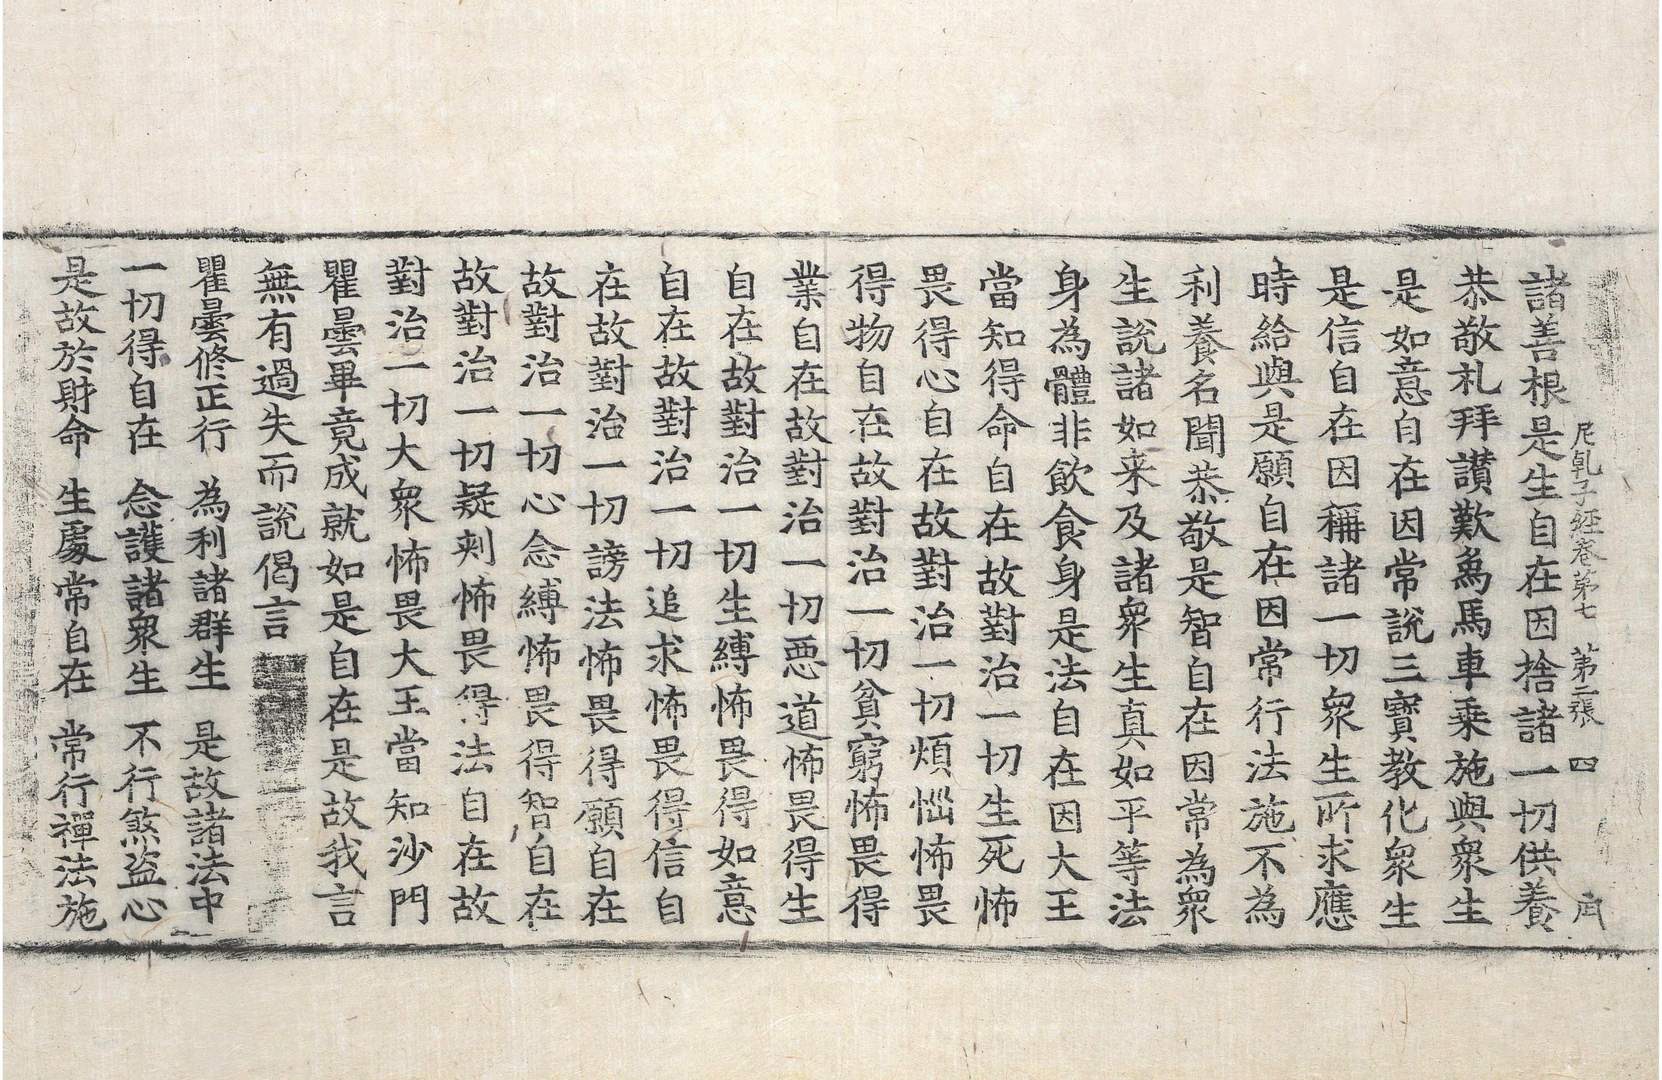 尼乹子経卷第七 第二張 四
諸善根是生自在因捨諸一切供養
恭敬礼拜讃歎爲馬車乗施與衆生
是如意自在因常說三寳教化衆生
是信自在因稱諸一切衆生所求應
時給與是願自在因常行法施不為
利養名聞恭敬是智自在因常為衆
生說諸如来及諸衆生真如平等法
身為體非飲食身是法自在因大王
當知得命自在故對治一切生死怖
畏得心自在故對治一切煩惱怖畏
得物自在故對治一切貧窮怖畏得
業自在故對治一切悪道怖畏得生
自在故對治一切生縛怖畏得如意
自在故對治一切追求怖畏得信自
在故對治一切謗法怖畏得願自在
故對治一切心念縛怖畏得智自在
故對治一切疑刺怖畏得法自在故
對治一切大衆怖畏大王當知沙門
瞿曇畢竟成就如是自在是故我言
無有過失而説偈言
瞿曇修正行 為利諸群生 是故諸法中
一切得自在 念護諸衆生 不行煞盗心
是故於財命 生處常自在 常行禪法施